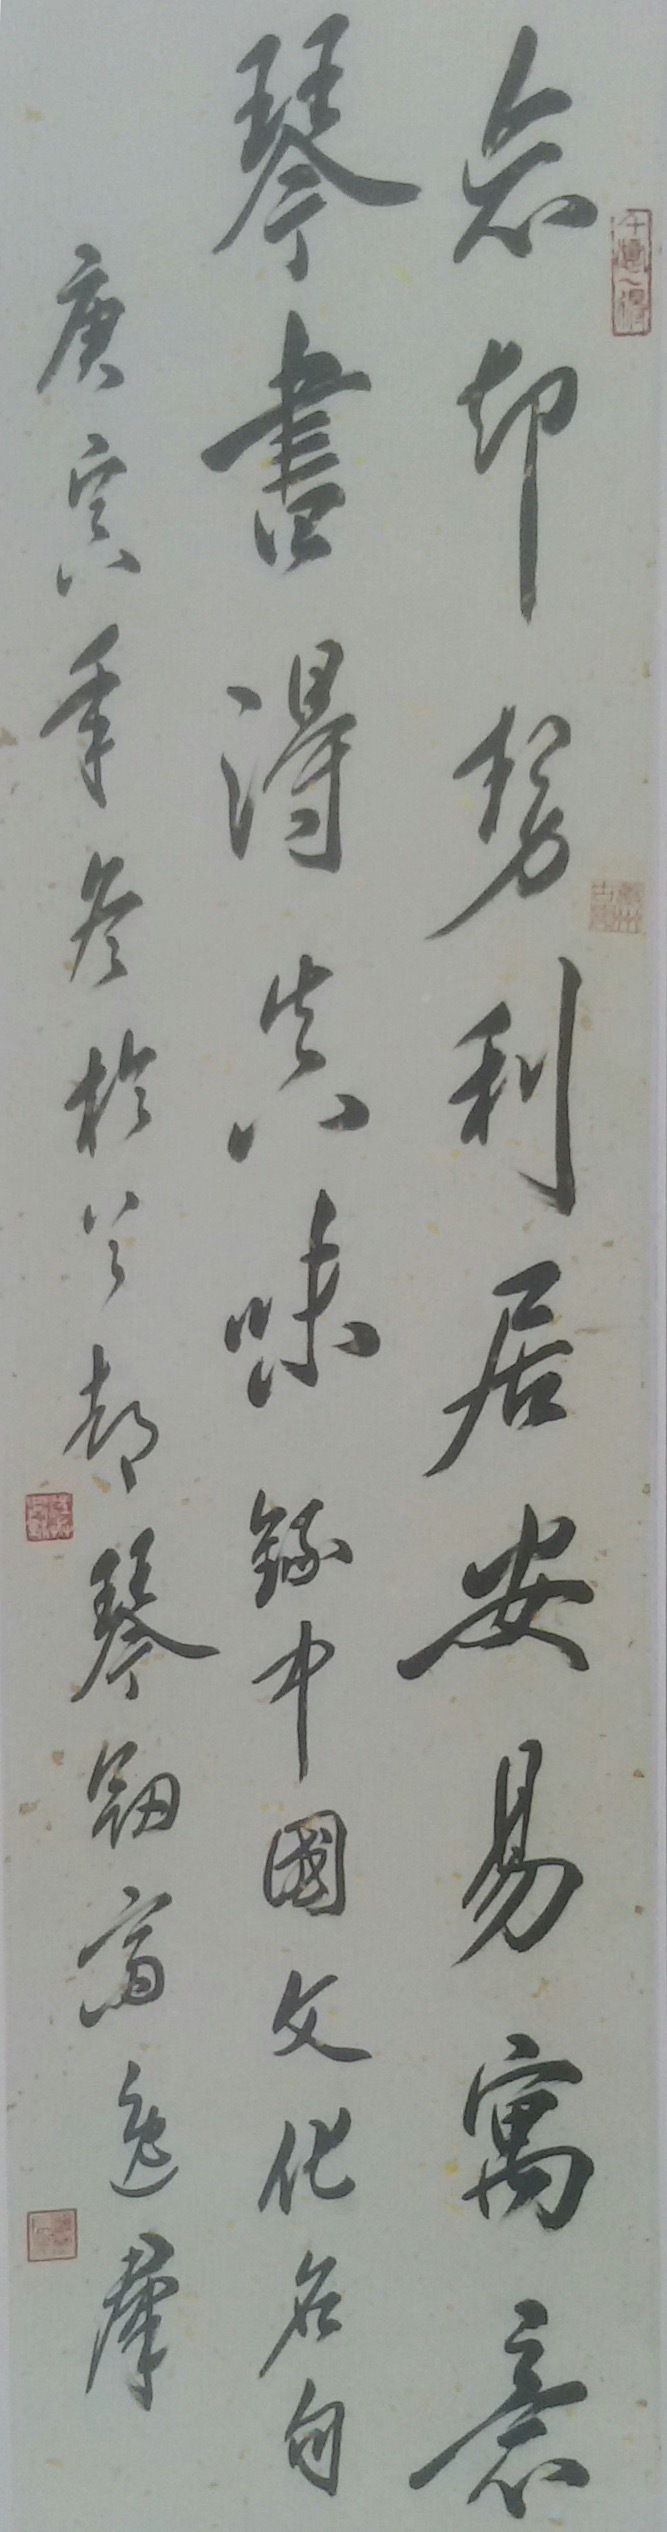 千慮一得
忘却勢利居安易寓意
琴書得真味錄中國文化名句
庚寅年冬於都琴劍齋逸羣